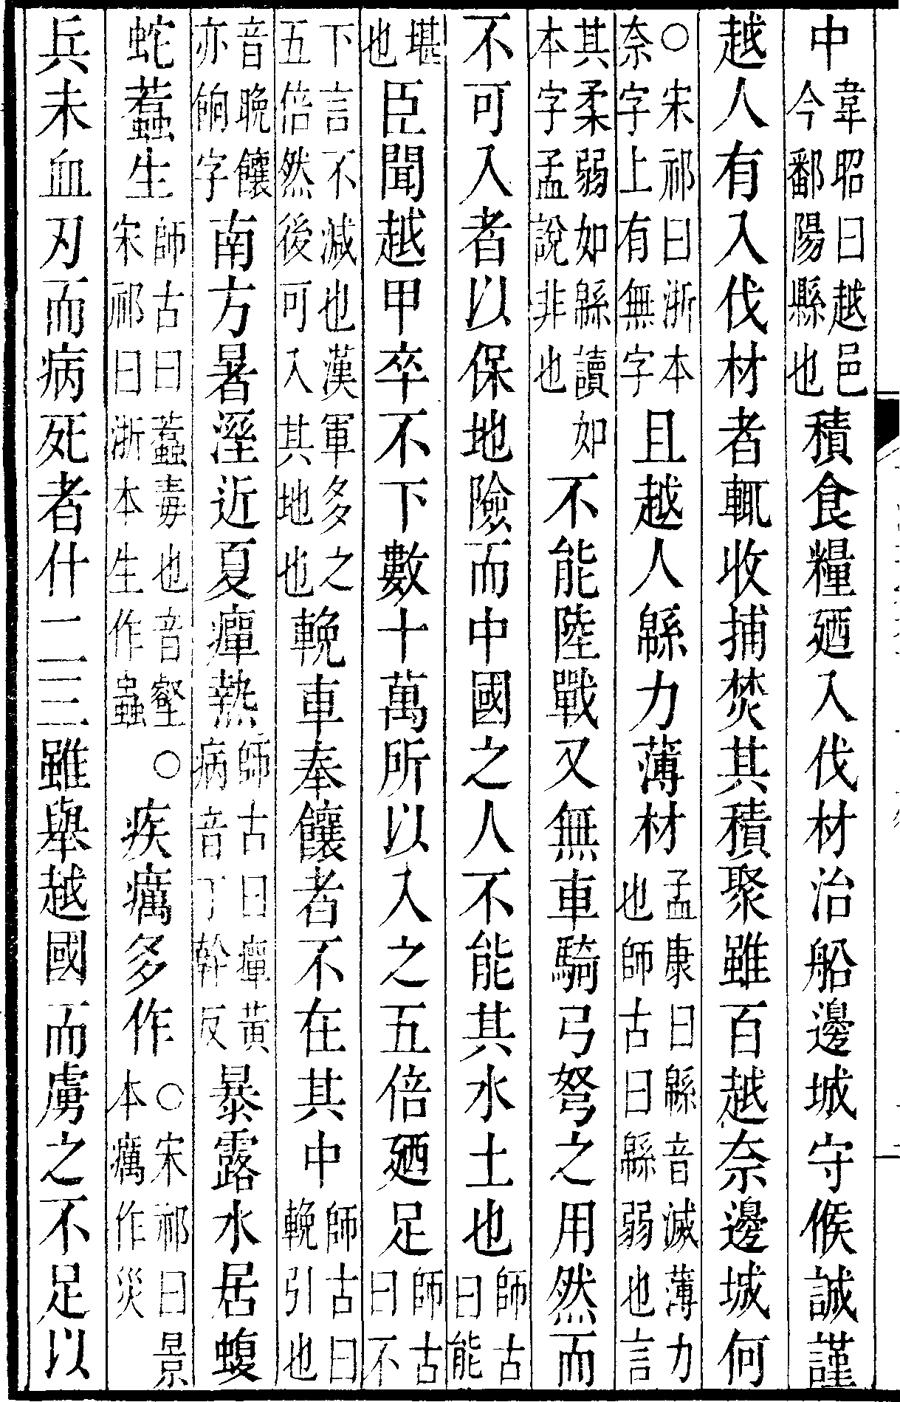 中韋昭曰越邑今鄱陽縣也積食糧廼入伐材治船邊城守候誠謹
越人有入伐材者輒收捕焚其積聚雖百越奈邊城何
○宋祁曰浙本奈字上有無字且越人緜力薄材孟康曰緜音滅薄力也師古曰緜弱也言
其柔弱如緜讀如本字孟說非也不能陸戰又無車騎弓弩之用然而
不可入者以保地險而中國之人不能其水土也師古曰能
堪也臣聞越甲卒不下數十萬所以入之五倍廼足師古曰不
下言不減也漢軍多之五倍然後可入其地也輓車奉饟者不在其中師古曰輓引也
音晚饟亦餉字南方暑溼近夏癉熱師古曰癉黃病音丁幹反暴露水居蝮
蛇蠚生師古曰蠚毒也音壑○宋祁曰浙本生作蟲疾癘多作○宋祁曰景本癘作災
兵未血刃而病死者什二三雖舉越國而虜之不足以